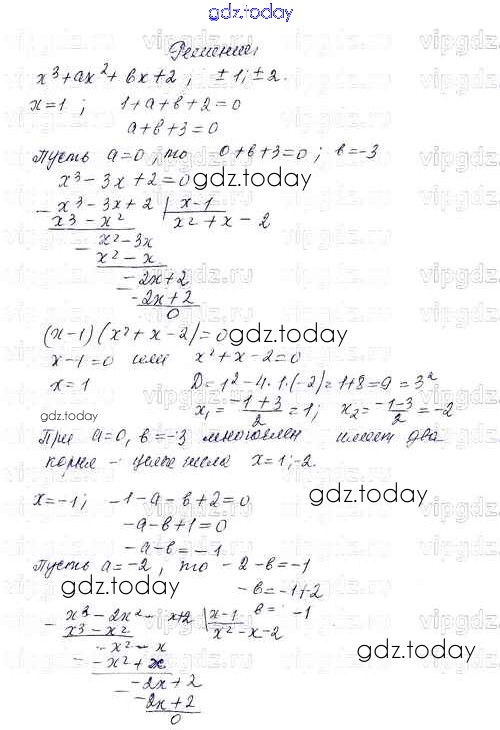 gdz.today
Решение:
x³+ax²+bx+2, ±1; ±2.
x=1 ; 1+a+b+2=0
a+b+3=0
Пусть a=0, то 0+b+3=0; b=-3
x³-3x+2=0
gdz.today
x³-3x+2 | x-1
x³-x² x²+x-2
x²-3x
x²-x
-2x+2
-2x+2
0
(x-1)(x²+x-2)=0
gdz.today
x-1=0 или x²+x-2=0
x=1 D=1²-4·1·(-2)=1+8=9=3²
x₁=(-1+3)/2=1; x₂=(-1-3)/2=-2
gdz.today
При a=0, b=-3 многочлен имеет два
корня - целые числа x=1;-2.
x=-1; -1-a-b+2=0
gdz.today
-a-b+1=0
-a-b=-1
Пусть a=-2, то -2-b=-1
-b=-1+2
b=-1
gdz.today
x³-2x²-x+2 | x-1
x³-x² x²-x-2
gdz.today
-x²-x
-x²+x
-2x+2
-2x+2
0
vipgdz.ru